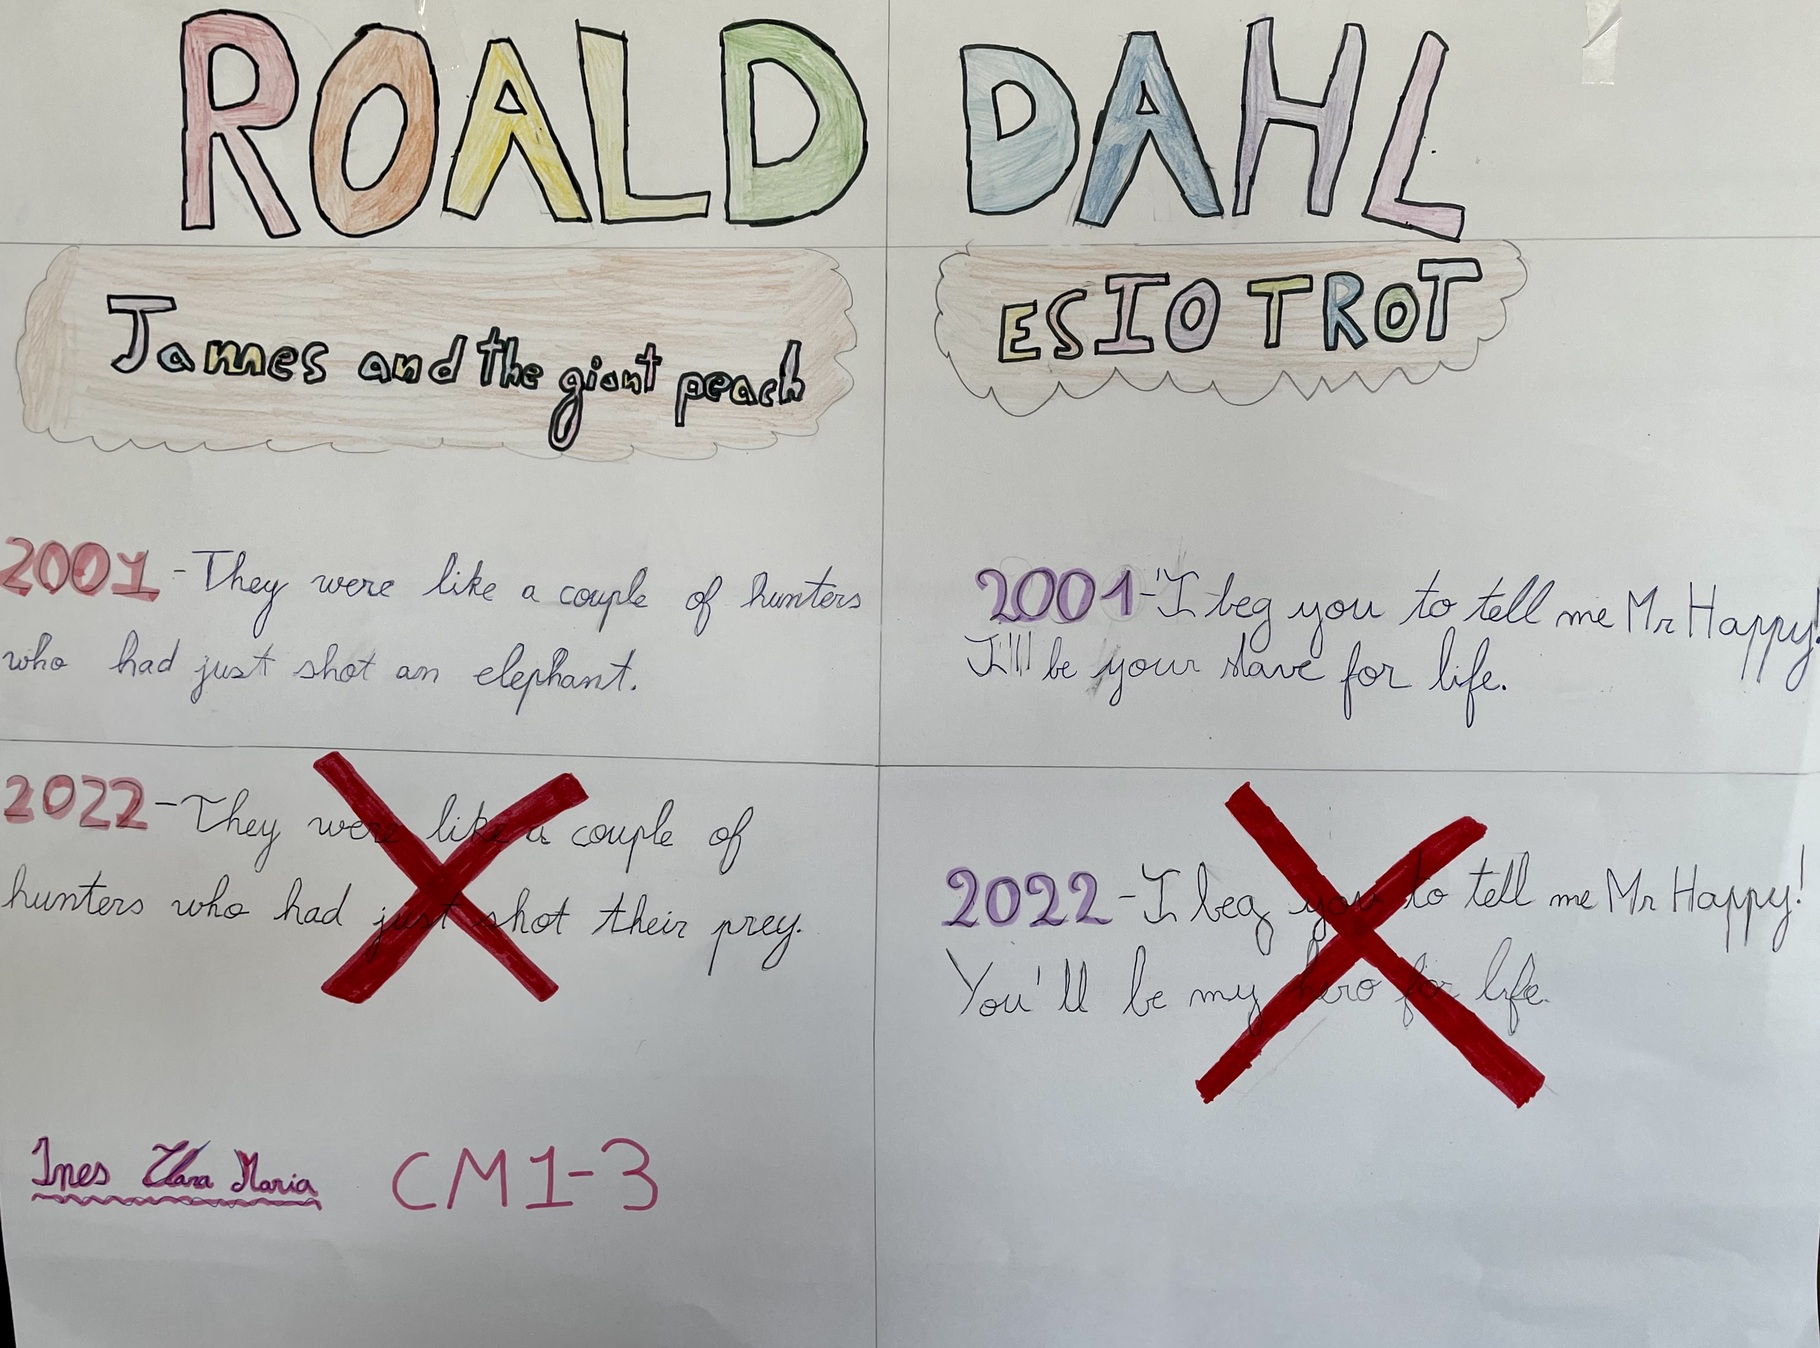 ROALD DAHL
James and the giant peach
2001-They were like a couple of hunters
who had just shot an elephant.
2022-They were like a couple of
hunters who had just shot their prey.
Ines Clara Maria CM1-3
ESIO TROT
2001-'I beg you to tell me Mr Happy!
I'll be your slave for life.
2022-I beg you to tell me Mr Happy!
You'll be my hero for life.